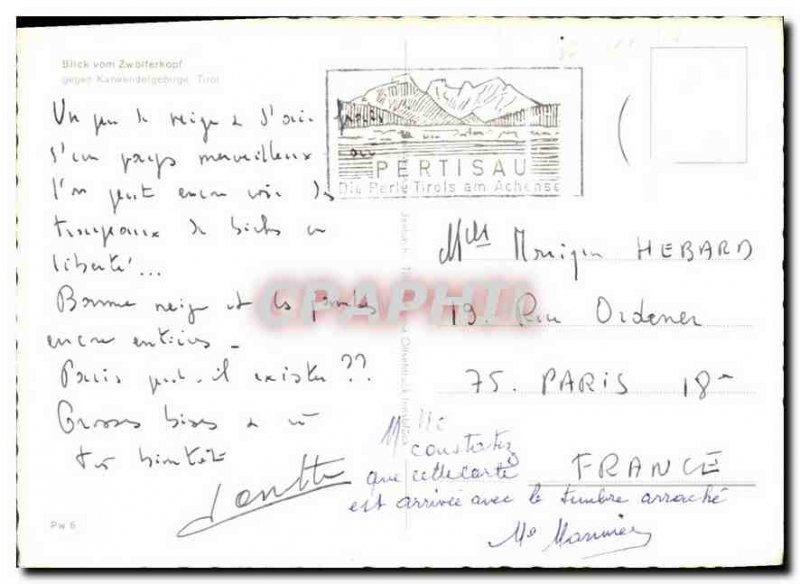 Blick vom Zwölferkopf
gegen Karwendelgebirge, Tirol
PERTISAU
Die Perle Tirols am Achensee
Un peu de neige
d'un pays merveilleux où
l'on peut encore voir des
troupeaux de biches en
liberté...
Bonne neige et les jambes
encore entières -
Paris peut-il exister ??
Grosses bises à
très bientôt
Mlle Monique HEBARD
19. Rue Ordener
75. PARIS 18e
FRANCE
Mlle
constatez
que cette carte
est arrivée avec le timbre arraché
Me
CPAPHIL
Pw 6